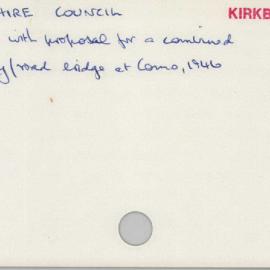 HIRE COUNCIL KIRKB
with proposal for a combined
y/road bridge at Como, 1946